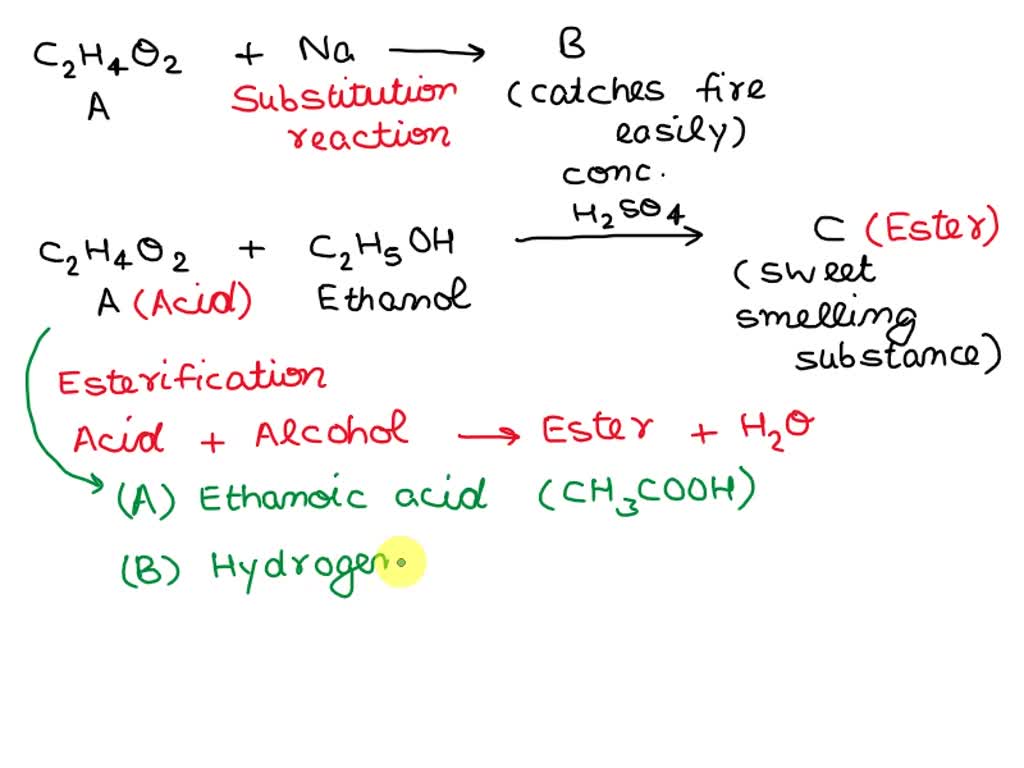 C₂H₄O₂ + Na ⟶ B
A Substitution reaction (catches fire easily)
conc.
H₂SO₄
C₂H₄O₂ + C₂H₅OH ⟶ C (Ester)
A (Acid) Ethanol (sweet smelling substance)
Esterification
Acid + Alcohol ⟶ Ester + H₂O
(A) Ethanoic acid (CH₃COOH)
(B) Hydrogen